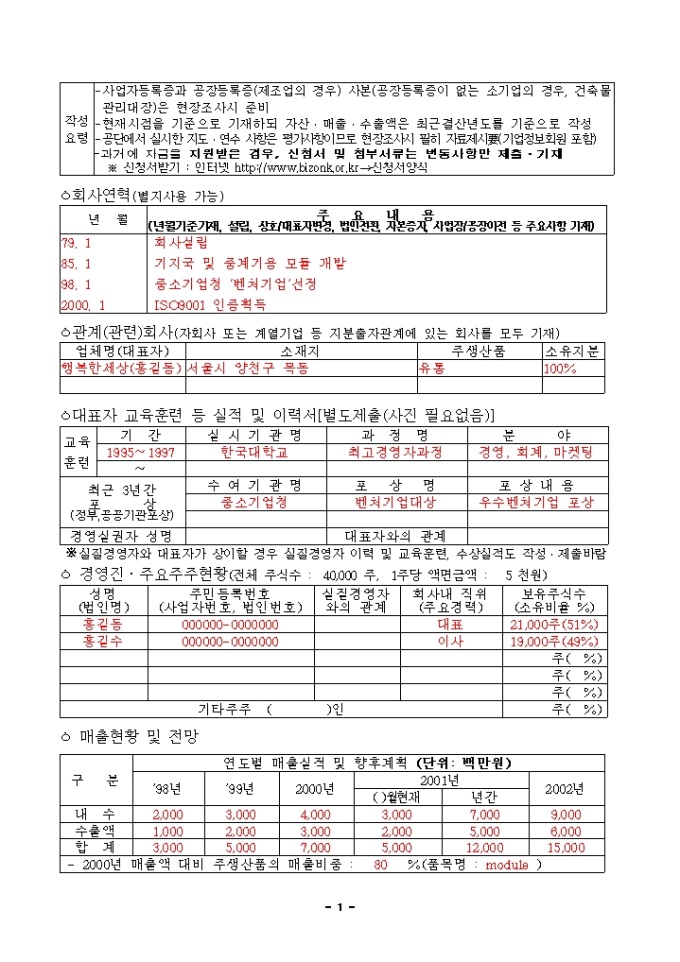 작성요령
-사업자등록증과 공장등록증(제조업의 경우) 사본(공장등록증이 없는 소기업의 경우, 건축물
관리대장)은 현장조사시 준비
-현재시점을 기준으로 기재하되 자산·매출·수출액은 최근결산년도를 기준으로 작성
-공단에서 실시한 지도·연수 사항은 평가사항이므로 현장조사시 필히 자료제시要(기업정보회원 포함)
-과거에 자금을 지원받은 경우, 신청서 및 첨부서류는 변동사항만 제출·기재
※ 신청서받기 : 인터넷 http://www.bizonk.or.kr→신청서양식
ㅇ회사연혁(별지사용 가능)
년 월 주 요 내 용
(년월기준기재, 설립, 상호/대표자변경, 법인전환, 자본증자, 사업장/공장이전 등 주요사항 기재)
79. 1 회사설립
85. 1 기지국 및 중계기용 모듈 개발
98. 1 중소기업청 '벤처기업'선정
2000. 1 ISO9001 인증획득
ㅇ관계(관련)회사(자회사 또는 계열기업 등 지분출자관계에 있는 회사를 모두 기재)
업체명(대표자) 소재지 주생산품 소유지분
행복한세상(홍길동) 서울시 양천구 목동 유통 100%
ㅇ대표자 교육훈련 등 실적 및 이력서[별도제출(사진 필요없음)]
교육훈련 기 간 실 시 기 관 명 과 정 명 분 야
1995~1997 한국대학교 최고경영자과정 경영, 회계, 마켓팅
~
최근 3년간 포 상 (정부,공공기관포상) 수 여 기 관 명 포 상 명 포 상 내 용
중소기업청 벤처기업대상 우수벤처기업 포상
경영실권자 성명 대표자와의 관계
※실질경영자와 대표자가 상이할 경우 실질경영자 이력 및 교육훈련, 수상실적도 작성·제출바람
ㅇ 경영진·주요주주현황(전체 주식수 : 40,000 주, 1주당 액면금액 : 5 천원)
성명 (법인명) 주민등록번호 (사업자번호, 법인번호) 실질경영자와의 관계 회사내 직위 (주요경력) 보유주식수 (소유비율 %)
홍길동 000000-0000000 대표 21,000주(51%)
홍길수 000000-0000000 이사 19,000주(49%)
주( %)
주( %)
주( %)
기타주주 ( )인 주( %)
ㅇ 매출현황 및 전망
구 분 연도별 매출실적 및 향후계획 (단위: 백만원)
'98년 '99년 2000년 2001년 2002년
( )월현재 년간
내 수 2,000 3,000 4,000 3,000 7,000 9,000
수출액 1,000 2,000 3,000 2,000 5,000 6,000
합 계 3,000 5,000 7,000 5,000 12,000 15,000
- 2000년 매출액 대비 주생산품의 매출비중 : 80 %(품목명 : module )
- 1 -